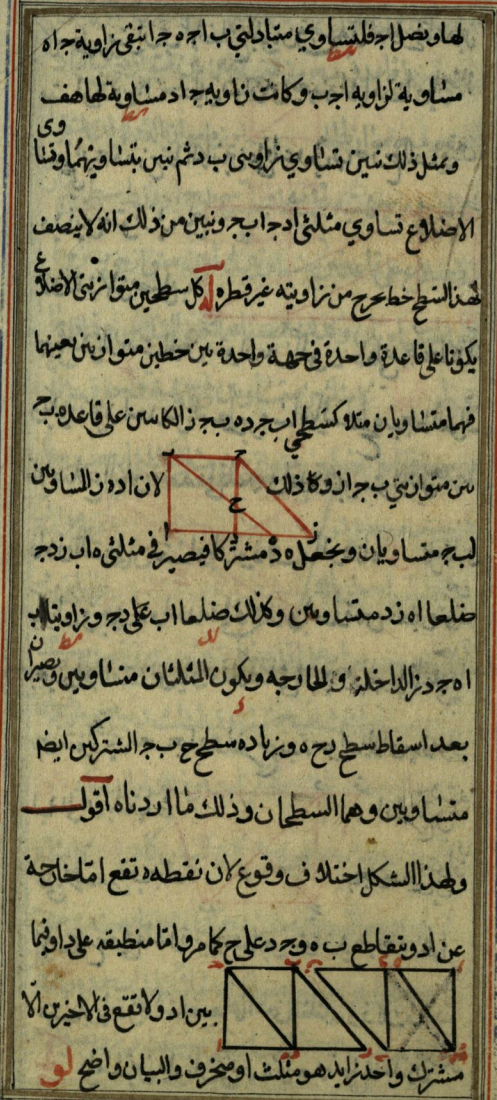 لها ونصل اج فلتساوي متبادلتي ب اج ه ج ا تبقى زاوية ج اه
مساوية لزاوية اجب وكانت زاويه ج اد مساوية لها هف
وبمثل ذلك نبين تساوي زاويتى ب د ثم نبين بتساويهما وتساوى
الاضلاع تساوي مثلثى ادج ابج ونبين من ذلك انه لا ينصف
لهذا السطح خط يخرج من زاويته غير قطره له كل سطحين متوازيتى الاضلاع
يكونا على قاعدة واحدة فى جهة واحدة بين خطين متوازيين بعينهما
فهما متساويان مثلا كسطحي ابجد ه بجز الكائنين على قاعده بج
بين متوازيتي بج از وذلك لان اد ه ز المتساويين
لبج متساويان ونجعل ه د مشتركا فيصير فى مثلثى ه اب زدج
ضلعا اه زد متساويين وكذلك ضلعا اب دج وزاويتا ب
اه جدز الداخلة والخارجه ويكون المثلثان متساويين ويصيران
بعد اسقاط سطح دح ه وزياده سطح ح ب ج المشتركين ايضا
متساويين وهما السطحان وذلك ما اردناه اقول
ولهذا الشكل اختلاف وقوع لان نقطه ه تقع اما خارجة
عن اد ويتقاطع ب ه وجد على ح كما مر واما منطبقه على د او فيما
بين اد ولا تقع فى الاخيرين الّا
مشترك واحد زايد هو مثلث او منحرف والبيان واضح لو